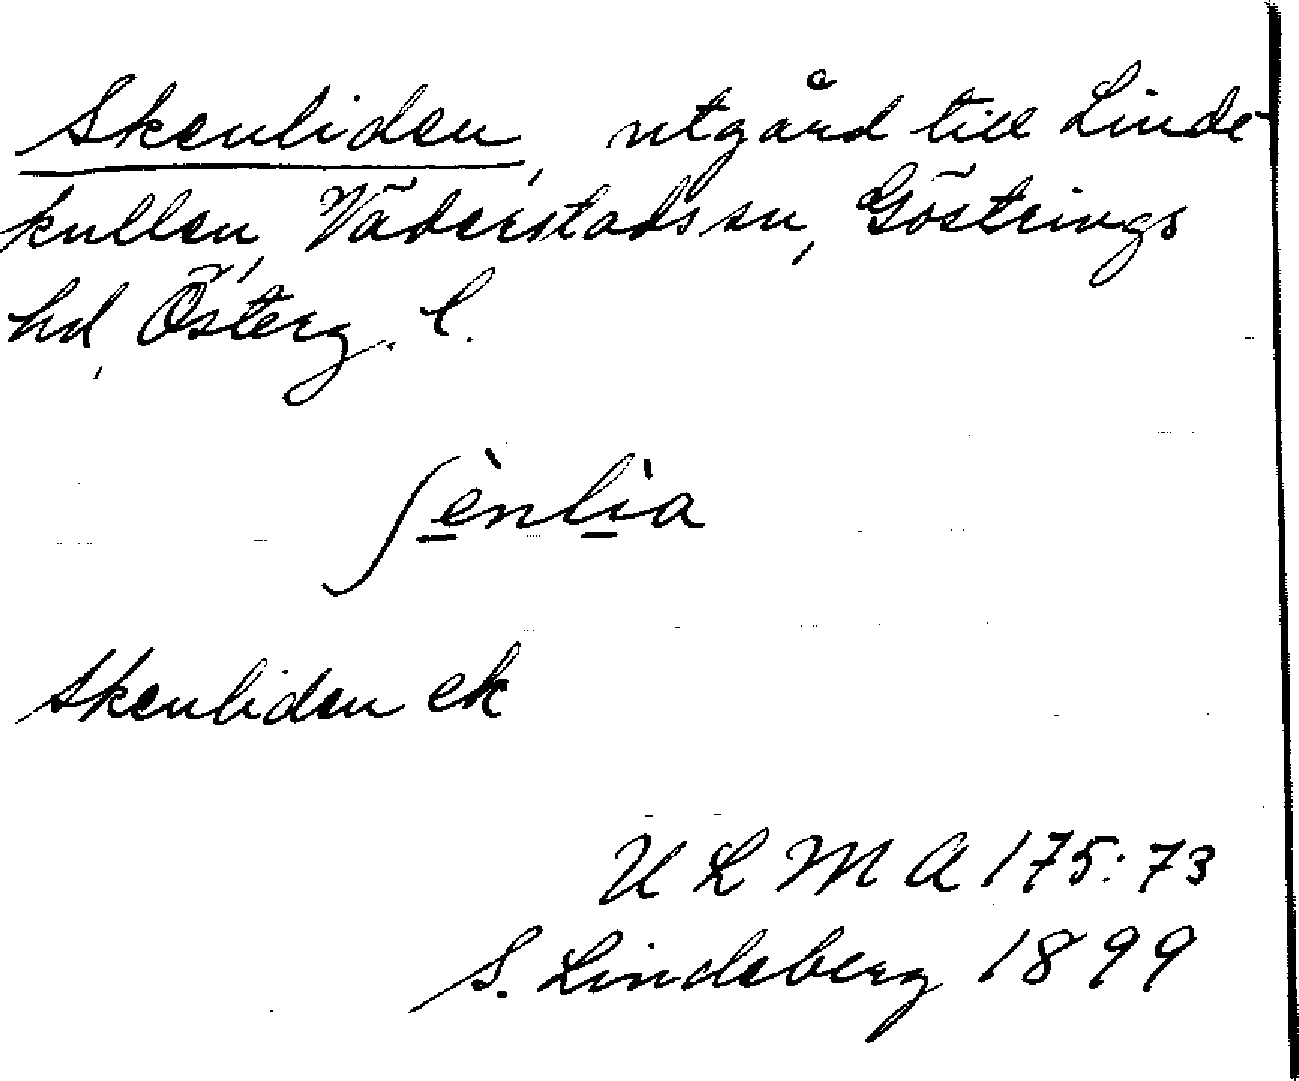 Skenliden, utgård till Linde-
kullen, Väderstads sn, Göstrings
hd, Österg. l.
ʃènlìa
Skenliden ek
ULMA 175:73
S. Lindeberg 1899